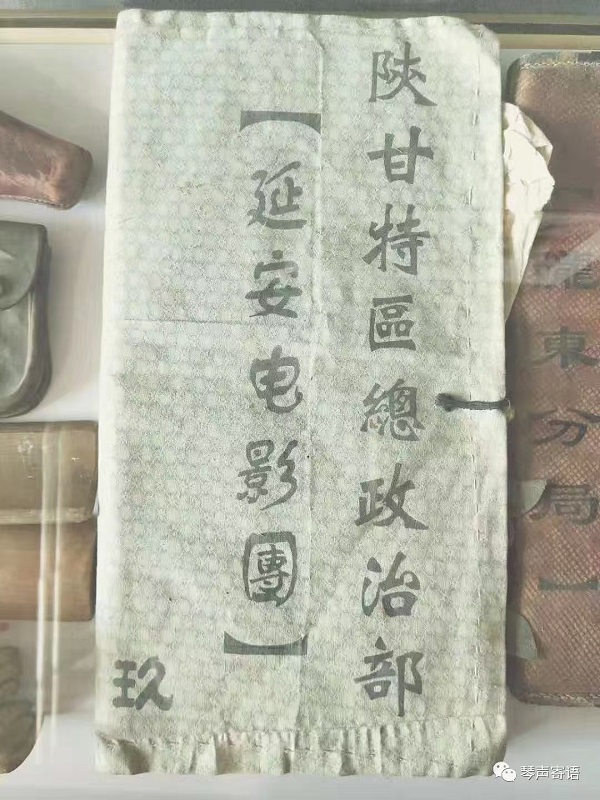 陕甘特區總政治部
【延安电影團】
玖
隴東分局】
琴声寄语